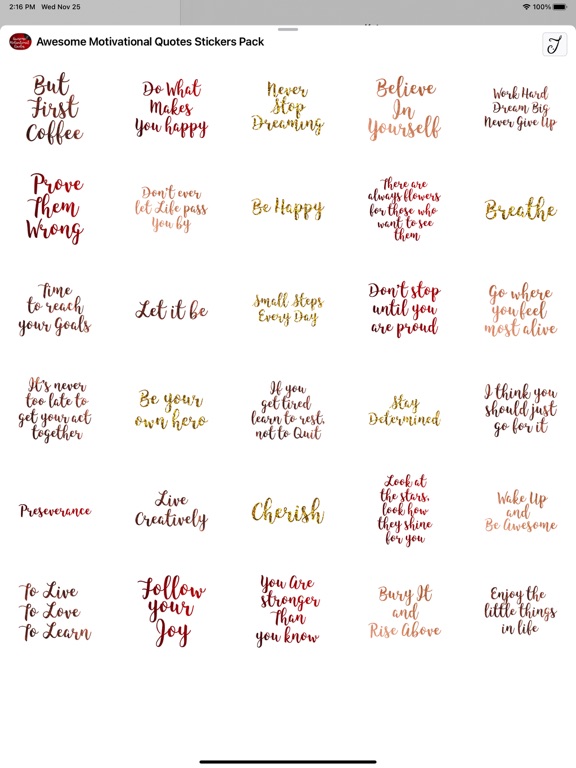 2:16 PM Wed Nov 25
100%
Awesome Motivational Quotes Stickers Pack
But
First
Coffee
Do What
Makes
You happy
Never
Stop
Dreaming
Believe
In
Yourself
Work Hard
Dream Big
Never Give Up
Prove
Them
Wrong
Don't ever
let Life pass
You by
Be Happy
There are
always flowers
for those who
want to see
them
Breathe
Time
to reach
your Goals
Let it be
Small Steps
Every Day
Don't stop
until you
are proud
Go where
you feel
most alive
It's never
too late to
get your act
together
Be your
own hero
If you
get tired
learn to rest,
not to Quit
Stay
Determined
I think you
should just
go for it
Preseverance
Live
Creatively
Cherish
Look at
the stars,
look how
they shine
for you
Wake Up
and
Be Awesome
To Live
To Love
To Learn
Follow
your
Joy
You Are
stronger
Than
you know
Bury It
and
Rise Above
Enjoy the
little things
in life